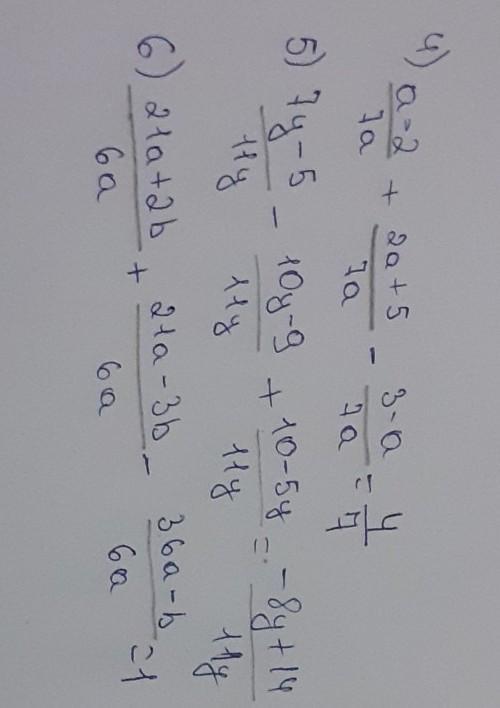 4) \frac{a-2}{7a} + \frac{2a+5}{7a} - \frac{3-a}{7a} = \frac{4}{7}
5) \frac{7y-5}{11y} - \frac{10y-9}{11y} + \frac{10-5y}{11y} = \frac{-8y+14}{11y}
6) \frac{21a+2b}{6a} + \frac{21a-3b}{6a} - \frac{36a-b}{6a} = 1